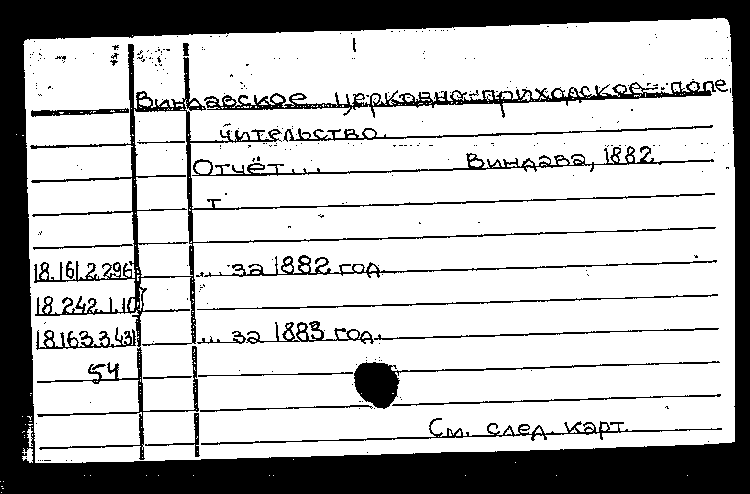 Виндавское церковно-приходское попе
чительство.
Отчёт... Виндава, 1882.
т
18.161.2.296} ... за 1882 год.
18.242.1.10}
18.163.3.431 ... за 1883 год.
54
См. след. карт.